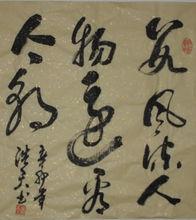 数风流人
物还看
今朝
辛卯年